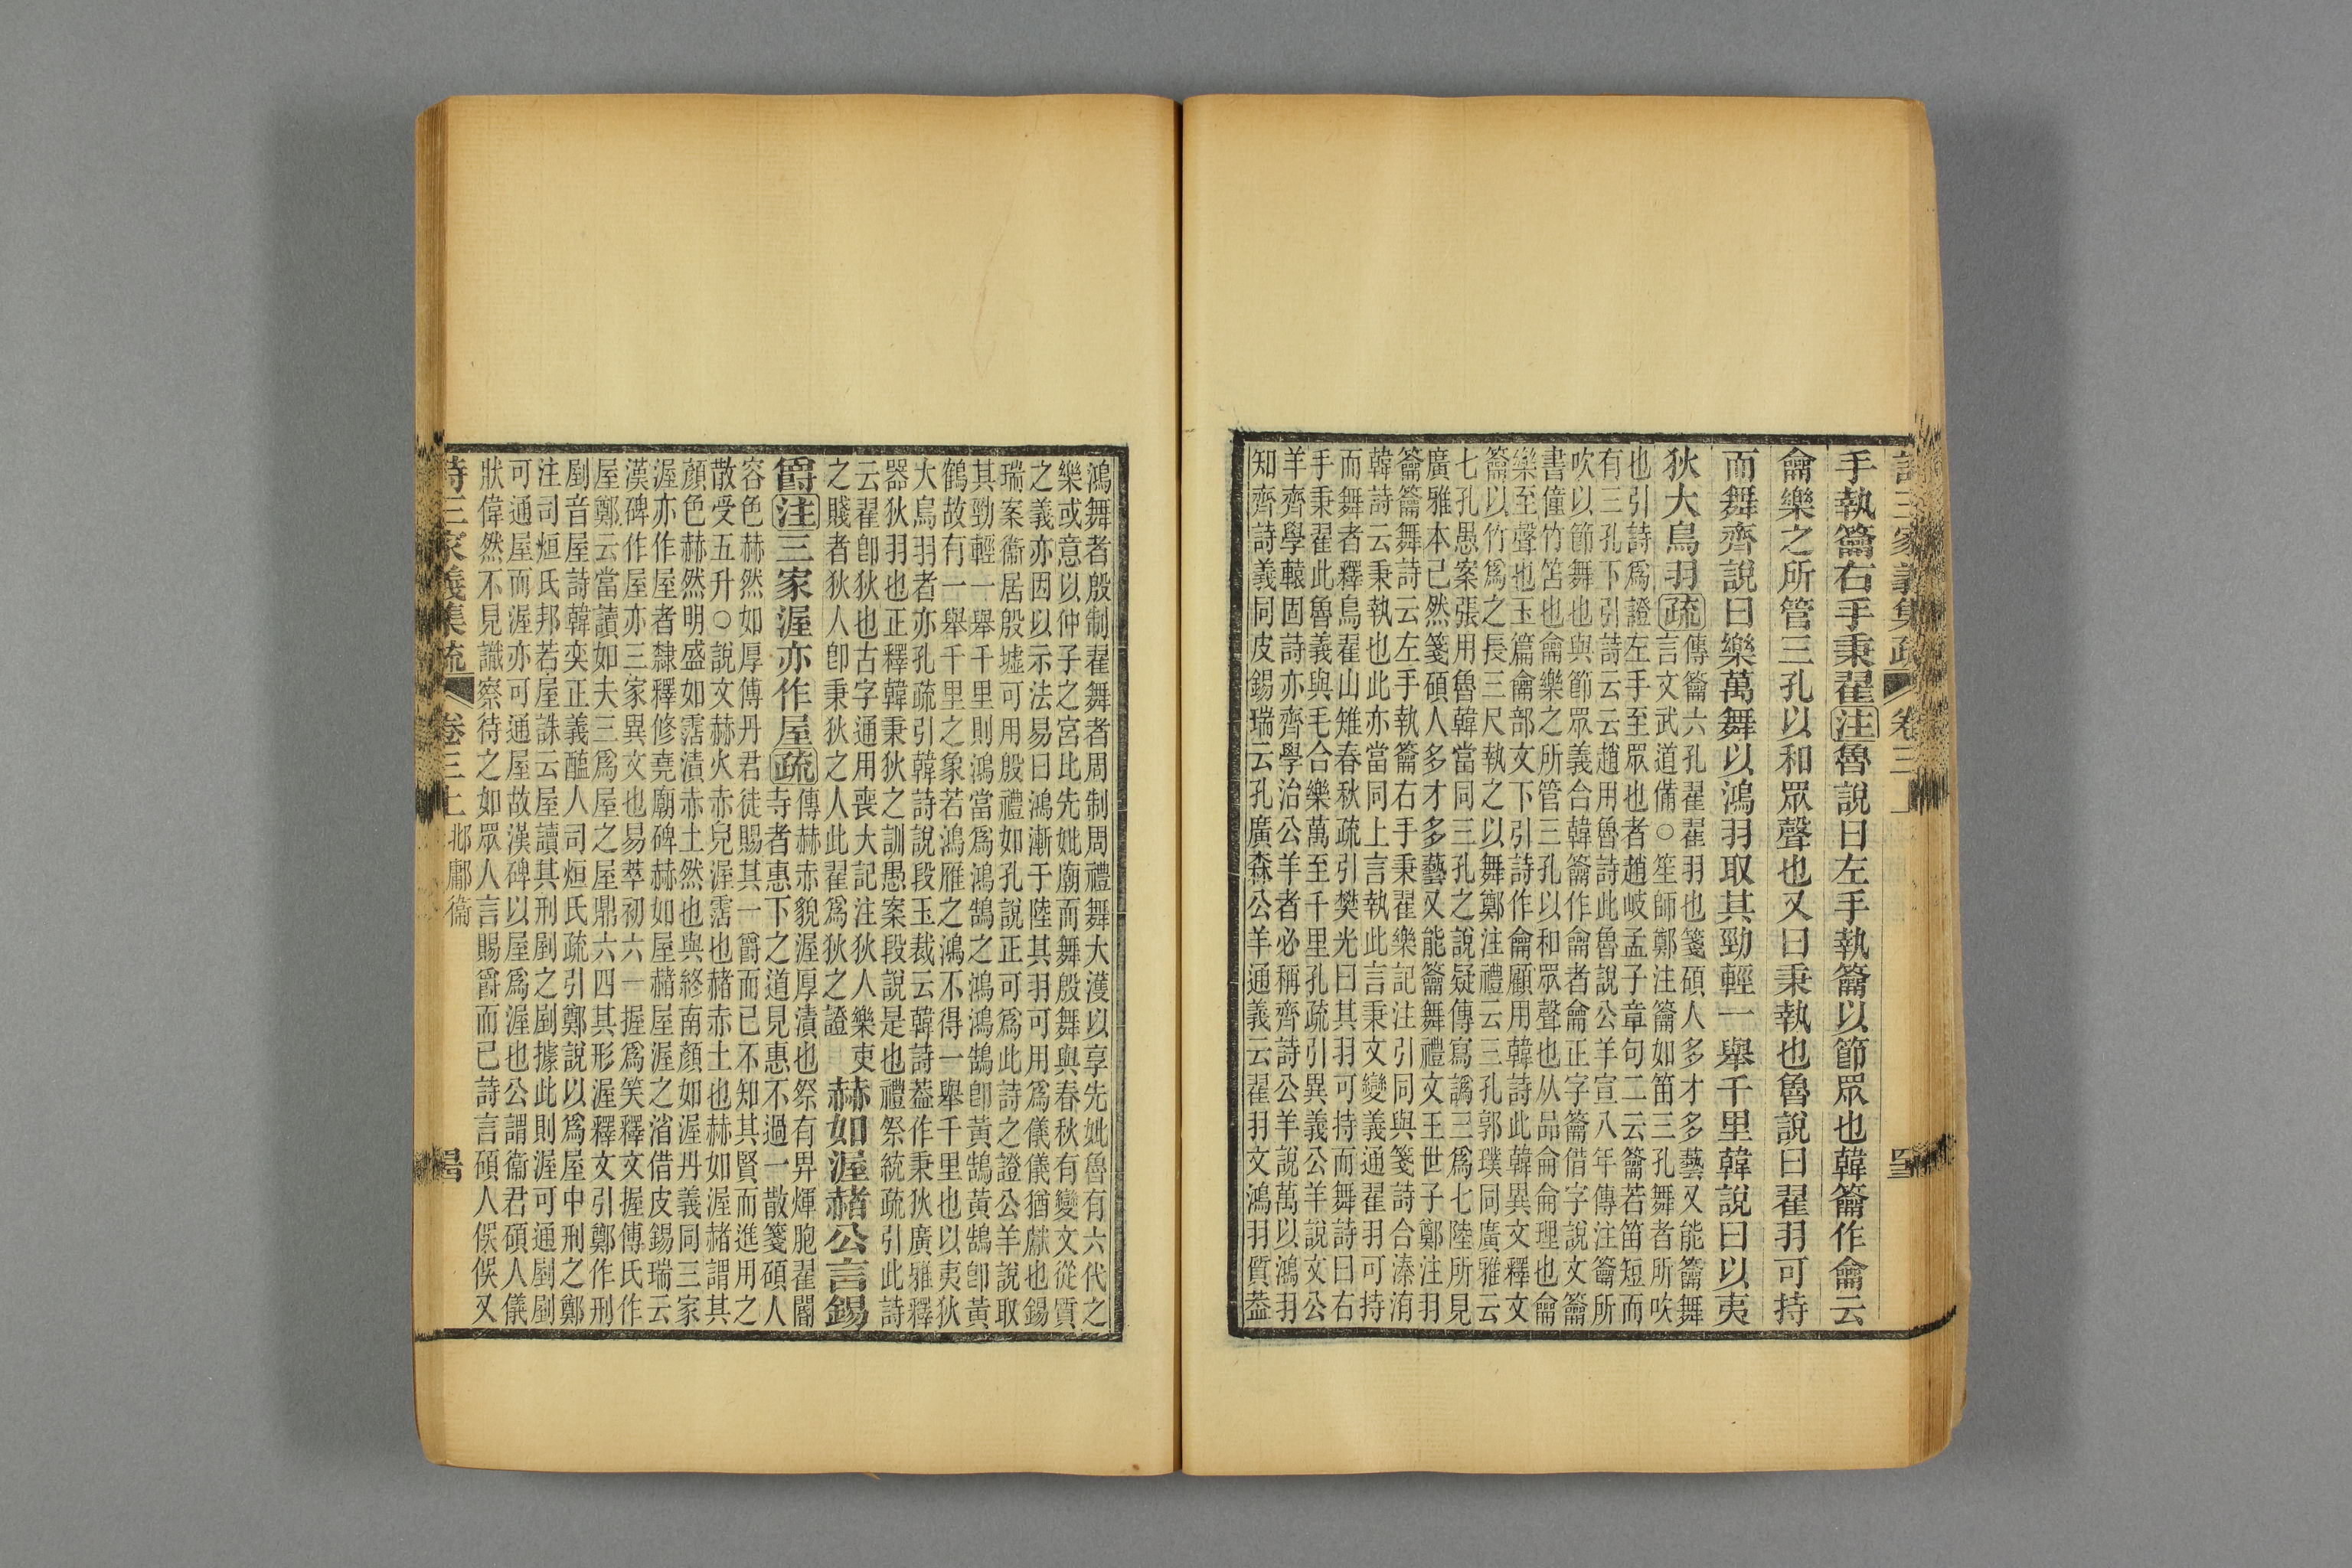 詩三家義集疏 卷三上
手執籥右手秉翟注魯說曰左手執籥以節眾也韓籥作龠云
龠樂之所管三孔以和眾聲也又曰秉執也魯說曰翟羽可持
而舞齊說曰樂萬舞以鴻羽取其勁輕一舉千里韓說曰以夷
狄大鳥羽疏傳籥六孔翟翟羽也箋碩人多才多藝又能籥舞
言文武道備○笙師鄭注籥如笛三孔舞者所吹
也引詩為證左手至眾也者趙岐孟子章句二云籥若笛短而
有三孔下引詩云云趙用魯詩此魯說公羊宣八年傳注籥所
吹以節舞也與節眾義合韓籥作龠者龠正字籥借字說文籥
書僮竹笘也龠樂之所管三孔以和眾聲也从品侖侖理也龠
樂至聲也玉篇龠部文下引詩作龠顧用韓詩此韓異文釋文
籥以竹為之長三尺執之以舞鄭注禮云三孔郭璞同廣雅云
七孔愚案張用魯韓當同三孔之說疑傳寫譌三為七陸所見
廣雅本已然箋碩人多才多藝又能籥舞禮文王世子鄭注羽
籥籥舞詩云左手執籥右手秉翟樂記注引同與箋詩合溱洧
韓詩云秉執也此亦當同上言執此言秉文變義通翟羽可持
而舞者釋鳥翟山雉春秋疏引樊光曰其羽可持而舞詩曰右
手秉翟此魯義與毛合樂萬至千里孔疏引異義公羊說文公
羊齊學轅固詩亦齊學治公羊者必稱齊詩公羊說萬以鴻羽
知齊詩義同皮錫瑞云孔廣森公羊通義云翟羽文鴻羽質葢
鴻舞者殷制翟舞者周制周禮舞大濩以享先妣魯有六代之
樂或意以仲子之宮比先妣廟而舞殷舞與春秋有變文從質
之義亦因以示法易曰鴻漸于陸其羽可用為儀儀猶獻也錫
瑞案衞居殷墟可用殷禮如孔說正可為此詩之證公羊說取
其勁輕一舉千里則鴻當為鴻鵠之鴻鴻鵠卽黃鵠黃鵠卽黃
鶴故有一舉千里之象若鴻雁之鴻不得一舉千里也以夷狄
大鳥羽者亦孔疏引韓詩說段玉裁云韓詩葢作秉狄廣雅釋
器狄羽也正釋韓秉狄之訓愚案段說是也禮祭統疏引此詩
云翟卽狄也古字通用喪大記注狄人樂吏赫如渥赭公言錫
之賤者狄人卽秉狄之人此翟為狄之證
爵注三家渥亦作屋疏傳赫赤貌渥厚漬也祭有畀煇胞翟閽
寺者惠下之道見惠不過一散箋碩人
容色赫然如厚傅丹君徒賜其一爵而已不知其賢而進用之
散受五升○說文赫火赤皃渥霑也赭赤土也赫如渥赭謂其
顏色赫然明盛如霑漬赤土然也與終南顏如渥丹義同三家
渥亦作屋者隸釋修堯廟碑赫如屋赭屋渥之渻借皮錫瑞云
漢碑作屋亦三家異文也易萃初六一握為笑釋文握傅氏作
屋鄭云當讀如夫三為屋之屋鼎六四其形渥釋文引鄭作刑
剭音屋詩韓奕正義醢人司烜氏疏引鄭說以為屋中刑之鄭
注司烜氏邦若屋誅云屋讀其刑剭之剭據此則渥可通剭剭
可通屋而渥亦可通屋故漢碑以屋為渥也公謂衞君碩人儀
狀偉然不見識察待之如眾人言賜爵而已詩言碩人俁俁又
詩三家義集疏 卷三上 邶鄘衞